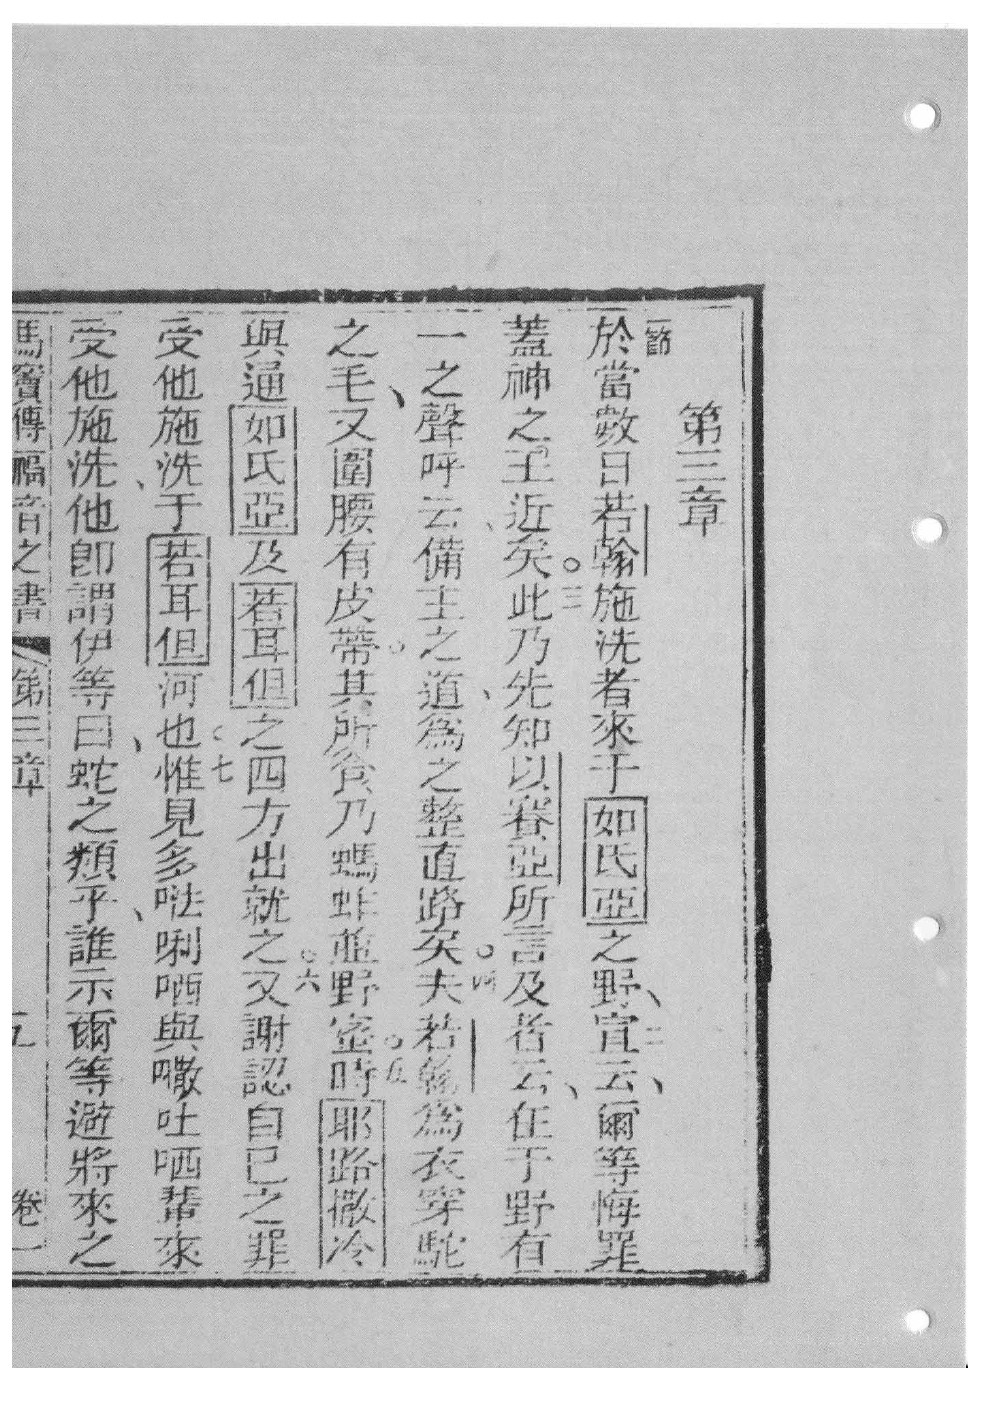 第三章
一節
於當數日若翰施洗者來于如氐亞之野、二宜云、爾等悔罪
蓋神之王近矣。三此乃先知以賽亞所言及者云、在于野有
一之聲呼云備主之道、為之整直路矣。四夫若翰為衣穿駝
之毛、又圍腰有皮帶。其所食乃螞蚱並野蜜。五時耶路撒冷
與通如氐亞及若耳但之四方出就之。六又謝認自已之罪
受他施洗、于若耳但河也。七惟見多𠵽唎哂與嘞吐哂輩來
受他施洗他即謂伊等曰、蛇之類乎、誰示爾等避將來之
馬竇傳福音之書 第三章 五 卷一